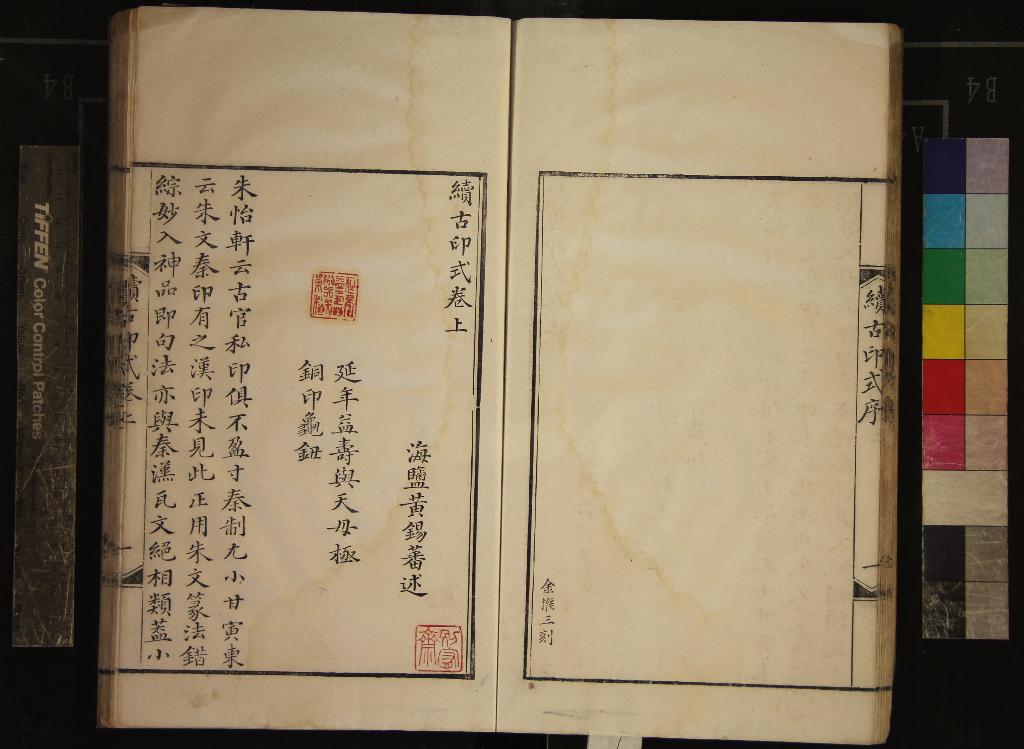 續古印式序
一
金淮三刻
續古印式卷上
海鹽黃錫蕃述
延年益壽與天毋極
銅印龜鈕
朱怡軒云古官私印俱不盈寸秦制尤小甘寅東
云朱文秦印有之漢印未見此正用朱文篆法錯
綜妙入神品即句法亦與秦漢瓦文絕相類蓋小
續古印式卷上
一
TIFFEN Color Control Patches
B4
B4